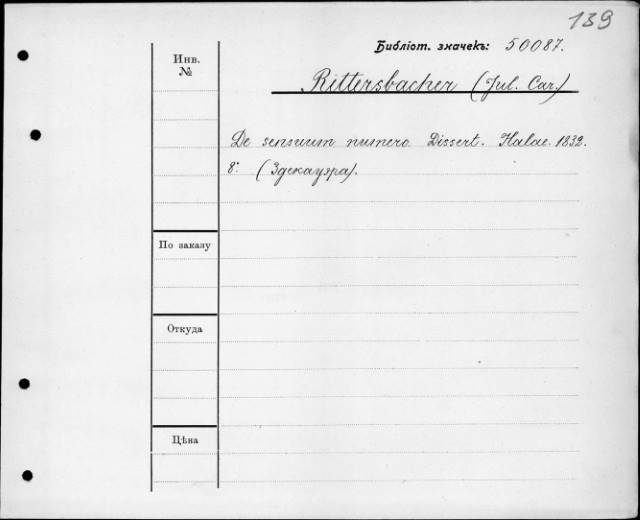 139
Библіот. значекъ: 50087.
Инв.
№
Rittersbacher (Jul. Car.)
De sensuum numero. Dissert. Halae. 1832.
8°. (Здекауэра).
По заказу
Откуда
Цѣна